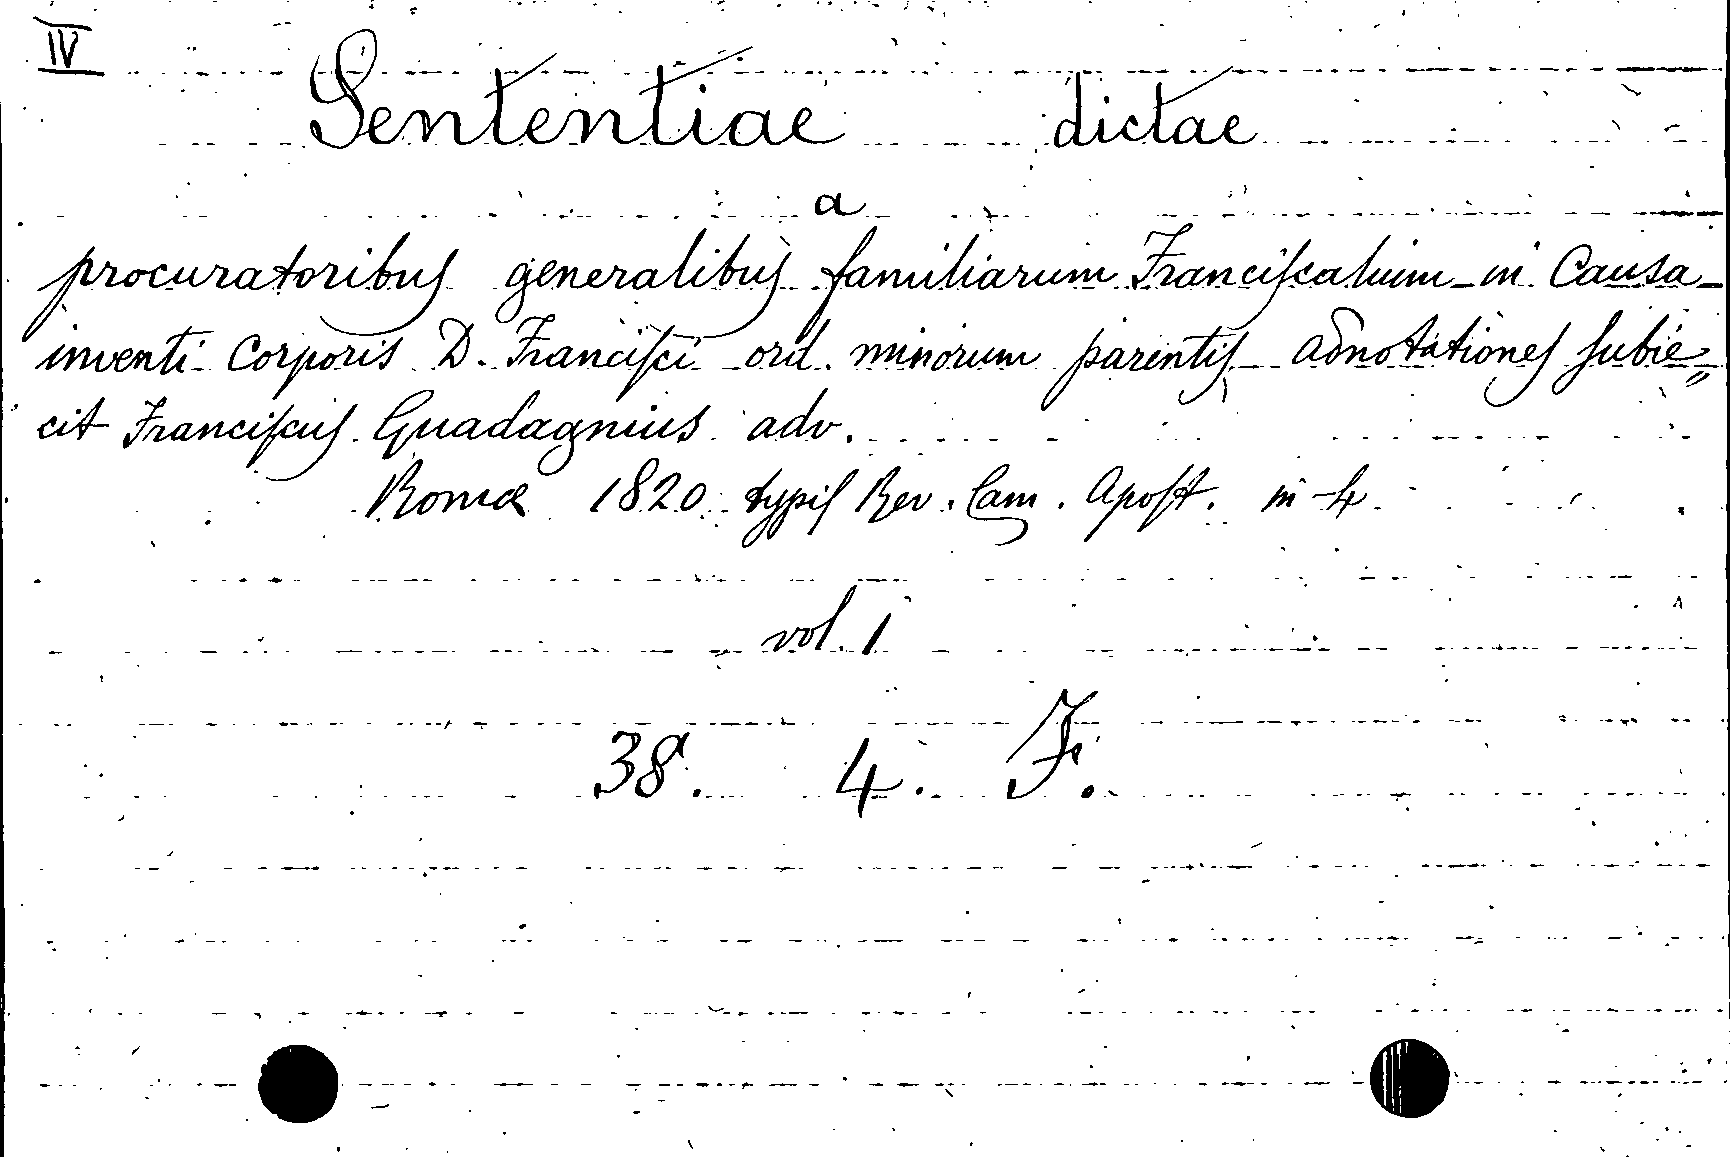 IV
Sententiae dictae
a
procuratoribus generalibus familiarum Franciscalium in Causa
inventi Corporis D. Francisci ord. minorum parentis adnotationes subie„
cit Franciscus Guadagnius adv.
Romæ 1820 typis Rev. Cam. Apost. in 4
vol. 1
38. 4. F.